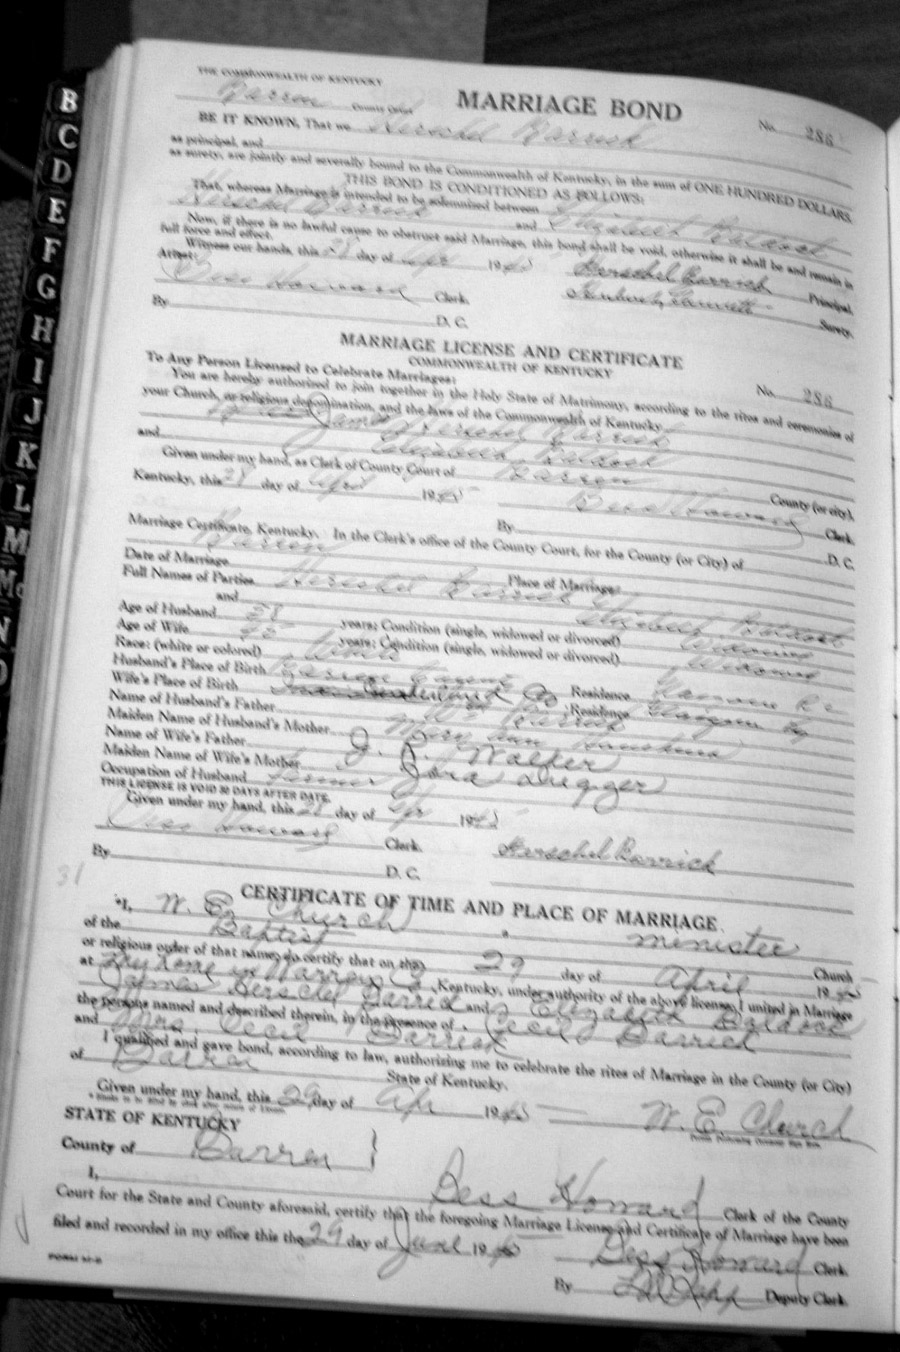 B
C
D
E
F
G
H
I
J
K
L
M
Mc
N
O
THE COMMONWEALTH OF KENTUCKY
Barren County Court
MARRIAGE BOND
No. 286
BE IT KNOWN, That we Herschel Barrick
as principal, and
as surety, are jointly and severally bound to the Commonwealth of Kentucky, in the sum of ONE HUNDRED DOLLARS.
THIS BOND IS CONDITIONED AS FOLLOWS:
That, whereas Marriage is intended to be solemnized between
Herschel Barrick and Elizabeth Baldock
Now, if there is no lawful cause to obstruct said Marriage, this bond shall be void, otherwise it shall be and remain in
full force and effect.
Witness our hands, this 28 day of Apr 19 45 Herschel Barrick Principal.
Attest:
Bess Howard Clerk. Surety.
By D. C.
MARRIAGE LICENSE AND CERTIFICATE
COMMONWEALTH OF KENTUCKY
To Any Person Licensed to Celebrate Marriages: No. 286
You are hereby authorized to join together in the Holy State of Matrimony, according to the rites and ceremonies of
your Church, or religious denomination, and the laws of the Commonwealth of Kentucky
James Herschel Barrick
and Elizabeth Baldock
Given under my hand, as Clerk of County Court of Barren County (or city),
Kentucky, this 28 day of Apr 19 45 Bess Howard Clerk.
By D. C.
Marriage Certificate, Kentucky. In the Clerk's office of the County Court, for the County (or City) of
Barren
Date of Marriage Place of Marriage:
Full Names of Parties Herschel Barrick
and Elizabeth Baldock
Age of Husband years; Condition (single, widowed or divorced) Widowed
Age of Wife years; Condition (single, widowed or divorced) Widowed
Race: (white or colored) White
Husband's Place of Birth Barren County Residence
Wife's Place of Birth Residence Glasgow Ky
Name of Husband's Father Barrick
Maiden Name of Husband's Mother Mary Ann
Name of Wife's Father J. R. Walker
Maiden Name of Wife's Mother Zora Dugger
Occupation of Husband Farmer
THIS LICENSE IS VOID 30 DAYS AFTER DATE.
Given under my hand, this 28 day of Apr 19 45
Bess Howard Clerk. Herschel Barrick
By D. C.
31
CERTIFICATE OF TIME AND PLACE OF MARRIAGE.
*I, W. E. Church a minister
of the Baptist Church
or religious order of that name, do certify that on the 29 day of April 19 45
at My home in Warren Co Kentucky, under authority of the above license, I united in Marriage
James Herschel Barrick and Elizabeth Baldock
the persons named and described therein, in the presence of Cecil Barrick
and Mrs. Cecil Barrick
I qualified and gave bond, according to law, authorizing me to celebrate the rites of Marriage in the County (or City)
of Barren State of Kentucky.
Given under my hand, this 29 day of Apr 19 45 W. E. Church
STATE OF KENTUCKY
County of Barren
I, Bess Howard Clerk of the County
Court for the State and County aforesaid, certify that the foregoing Marriage License and Certificate of Marriage have been
filed and recorded in my office this the 29 day of June 19 45
Bess Howard Clerk.
By Deputy Clerk.